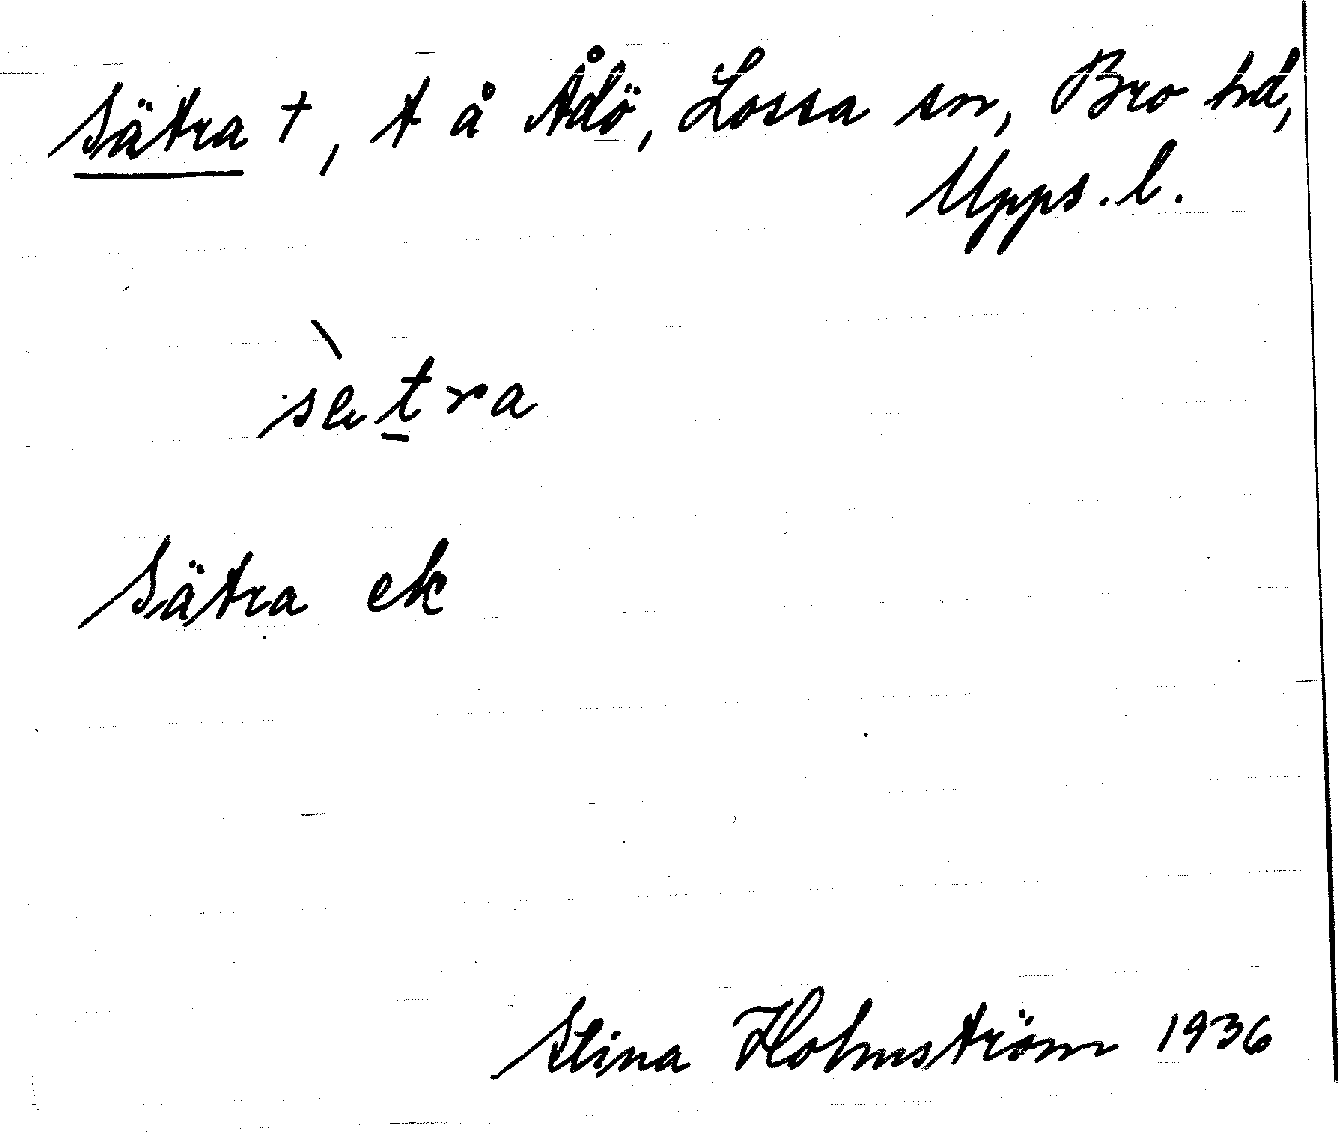 Sätra †, t å Ådö, Lossa sn, Bro hd,
Upps. l.
sὲtra
Sätra ek
Stina Holmström 1936